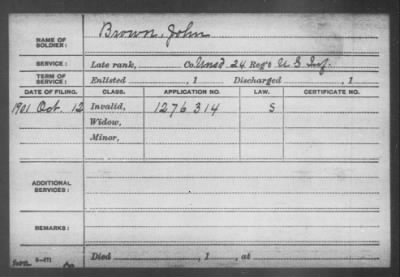 NAME OF SOLDIER: Brown, John
SERVICE: Late rank, Co. Unas'd 24 Reg't U S Inf.
TERM OF SERVICE: Enlisted , 1 Discharged , 1
DATE OF FILING. CLASS. APPLICATION NO. LAW. CERTIFICATE NO.
1901 Oct. 12 Invalid, 1276314 S
Widow,
Minor,
ADDITIONAL SERVICES:
REMARKS:
Died , 1 , at